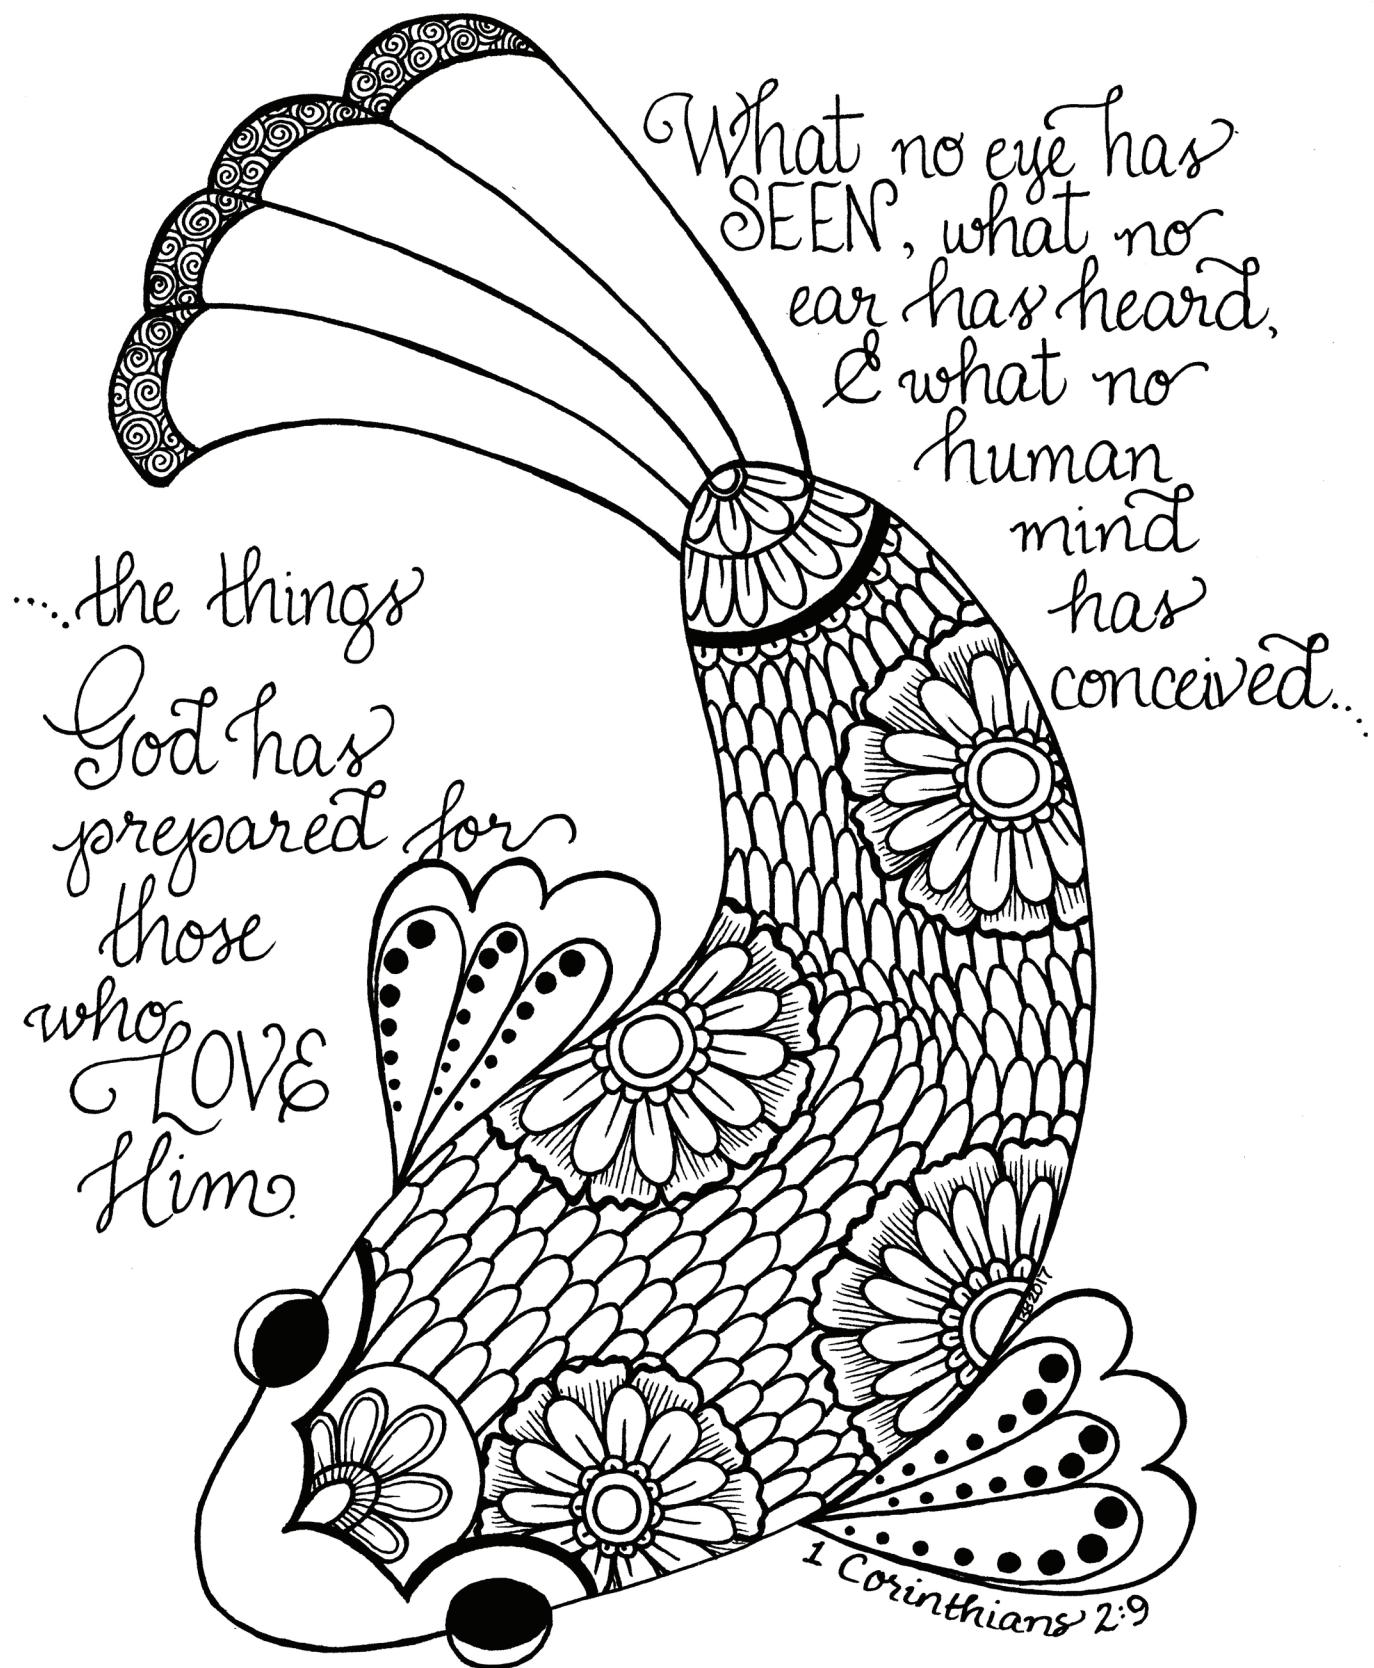 What no eye has
SEEN, what no
ear has heard,
& what no
human
mind
has
conceived...
...the things
God has
prepared for
those
who
LOVE
Him.
1 Corinthians 2:9